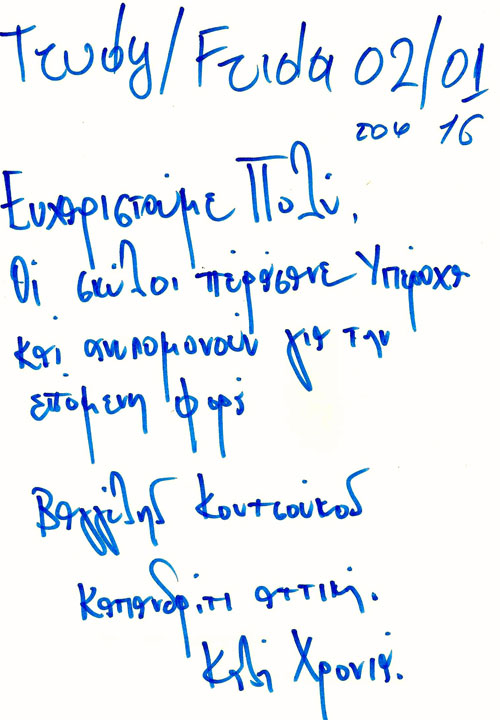 Truby/Frida 02/01
του 16
Ευχαριστούμε Πολύ,
Οι σκύλοι πέρασανε Υπέροχα
και ανυπομονούν για την
επόμενη φορά
Βαγγέλης Κουτσούκος
Καπανδρίτι αττική.
Καλή Χρονιά.